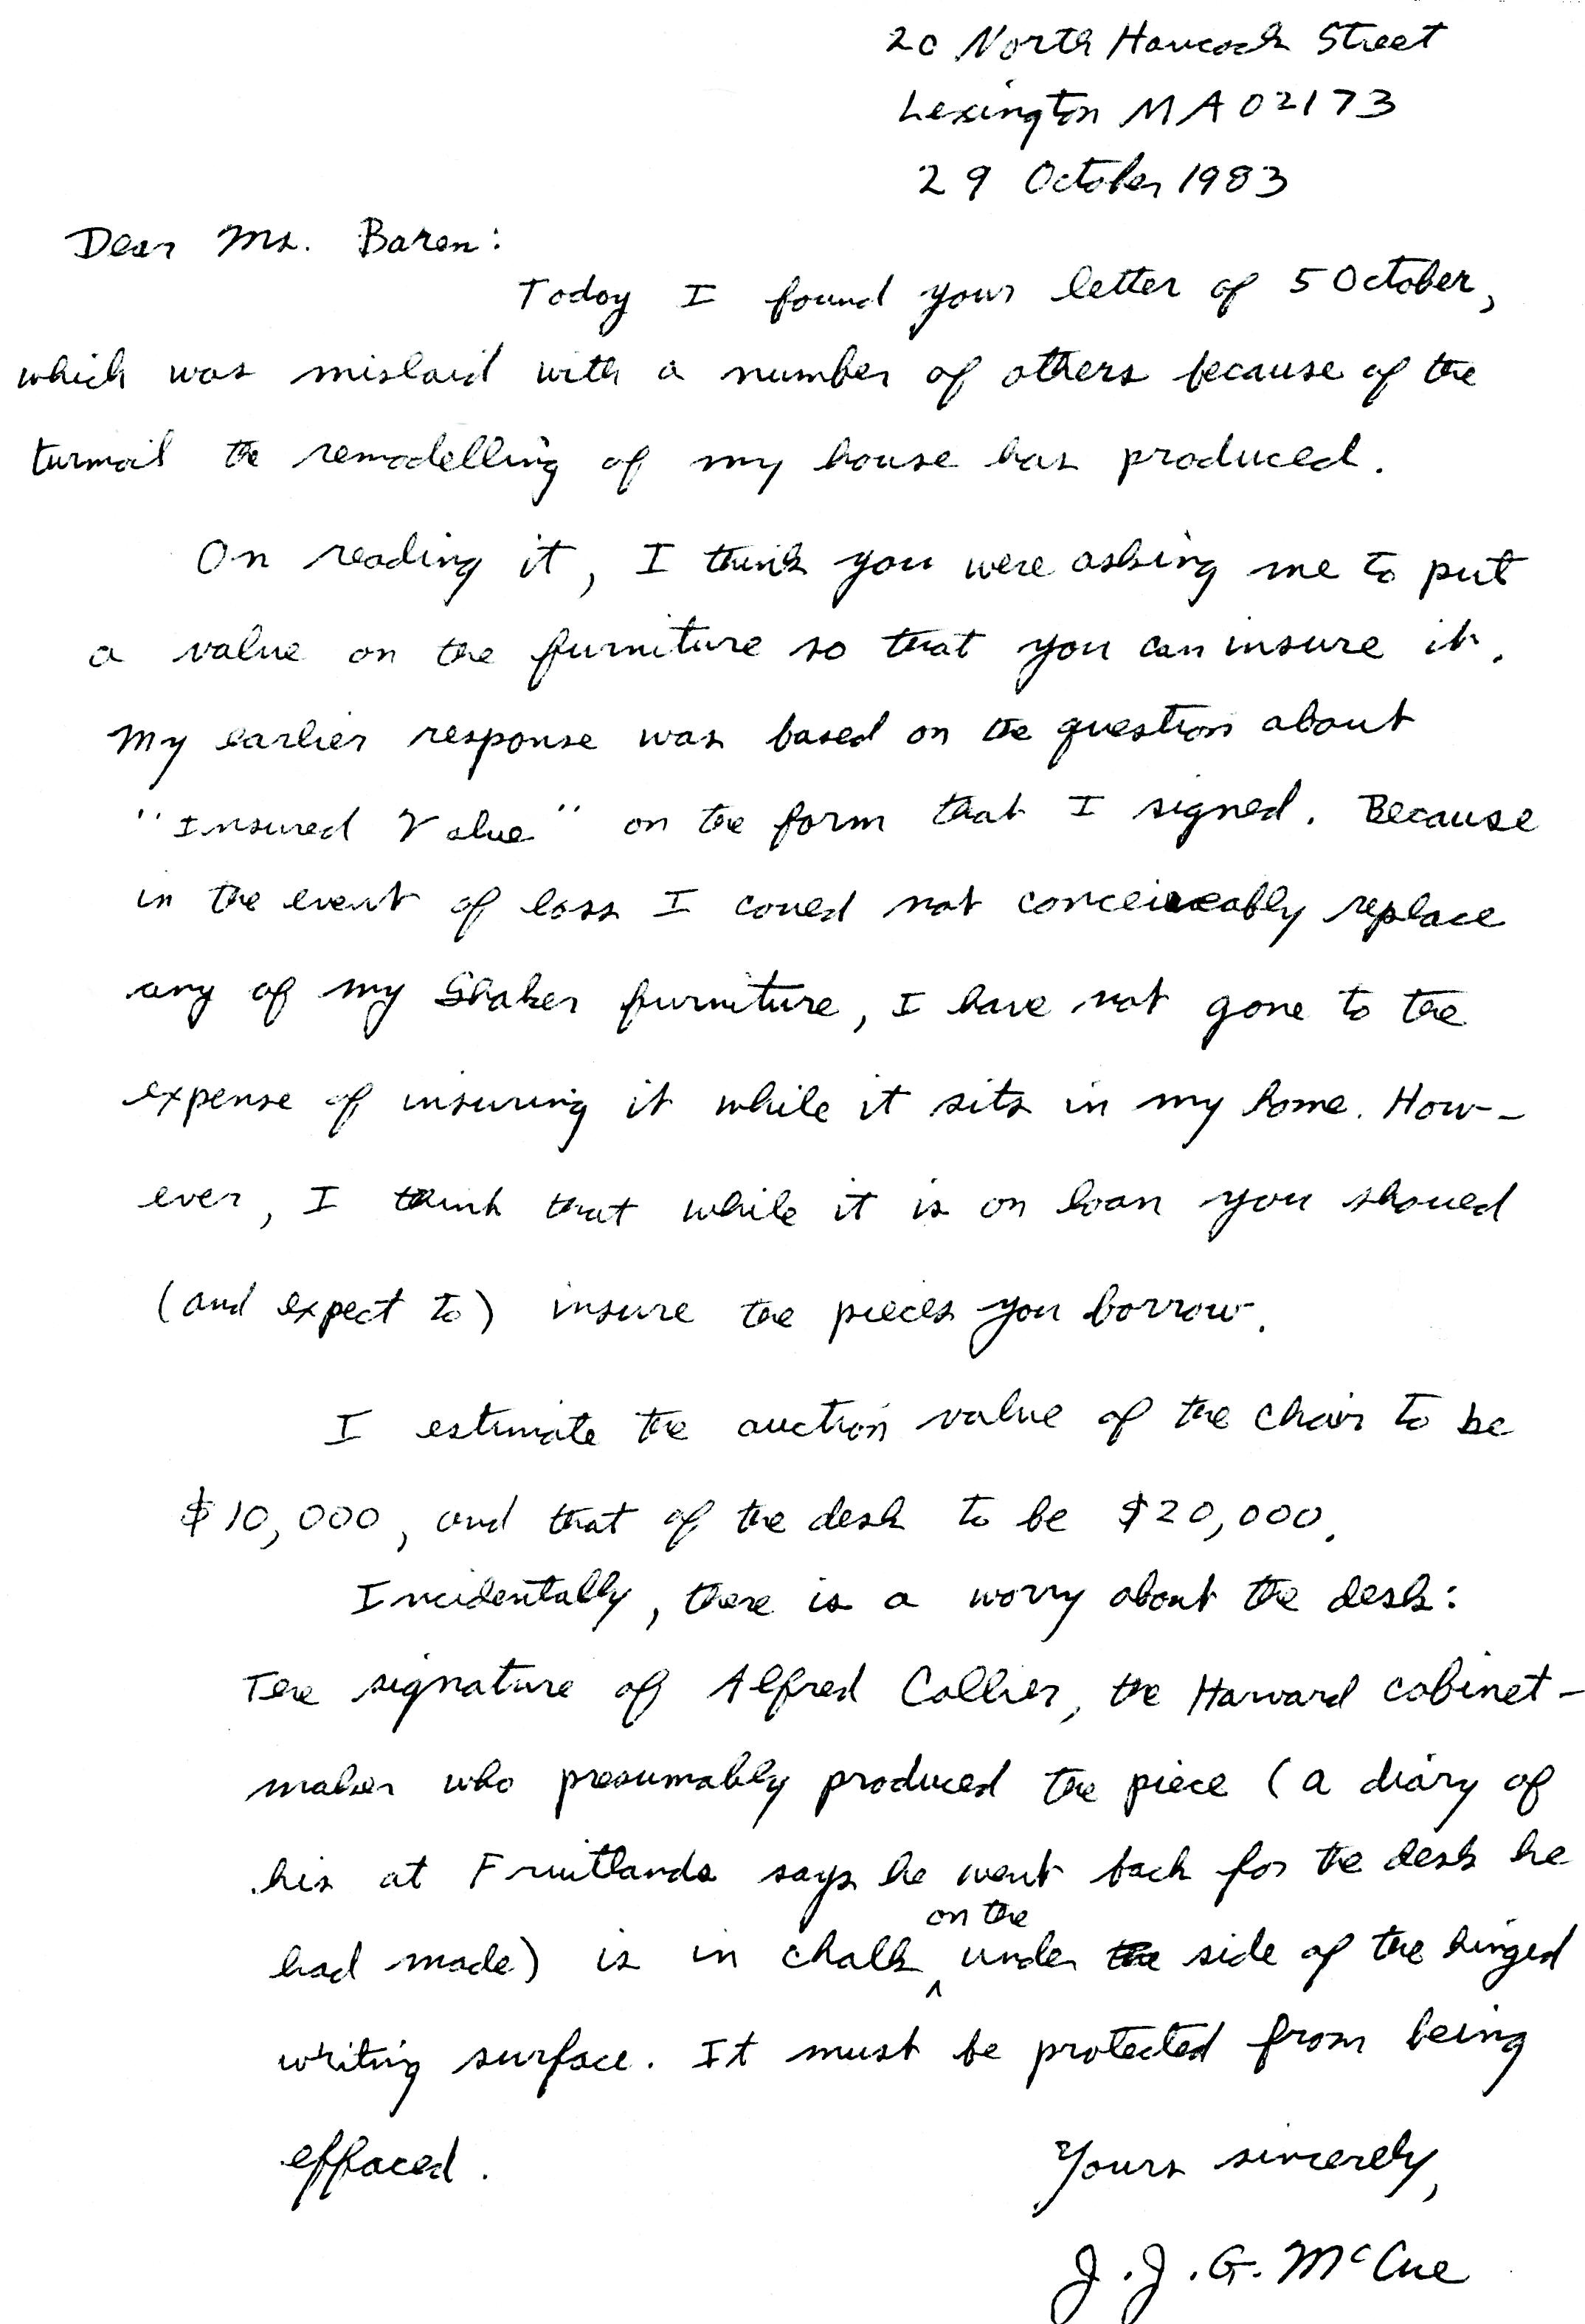 20 North Hancock Street
Lexington MA 02173
29 October 1983
Dear Ms. Baron:
Today I found your letter of 5 October,
which was mislaid with a number of others because of the
turmoil the remodelling of my house has produced.
On reading it, I think you were asking me to put
a value on the furniture so that you can insure it.
My earlier response was based on the question about
"Insured Value" on the form that I signed. Because
in the event of loss I could not conceiveably replace
any of my Shaker furniture, I have not gone to the
expense of insuring it while it sits in my home. How-
ever, I think that while it is on loan you should
(and expect to) insure the pieces you borrow.
I estimate the auction value of the chair to be
$10,000, and that of the desk to be $20,000.
Incidentally, there is a worry about the desk:
The signature of Alfred Collier, the Harvard cabinet-
maker who presumably produced the piece (a diary of
his at Fruitlands says he went back for the desk he
had made) is in chalk on the under side of the hinged
writing surface. It must be protected from being
effaced.
Yours sincerely,
J. J. G. McCue